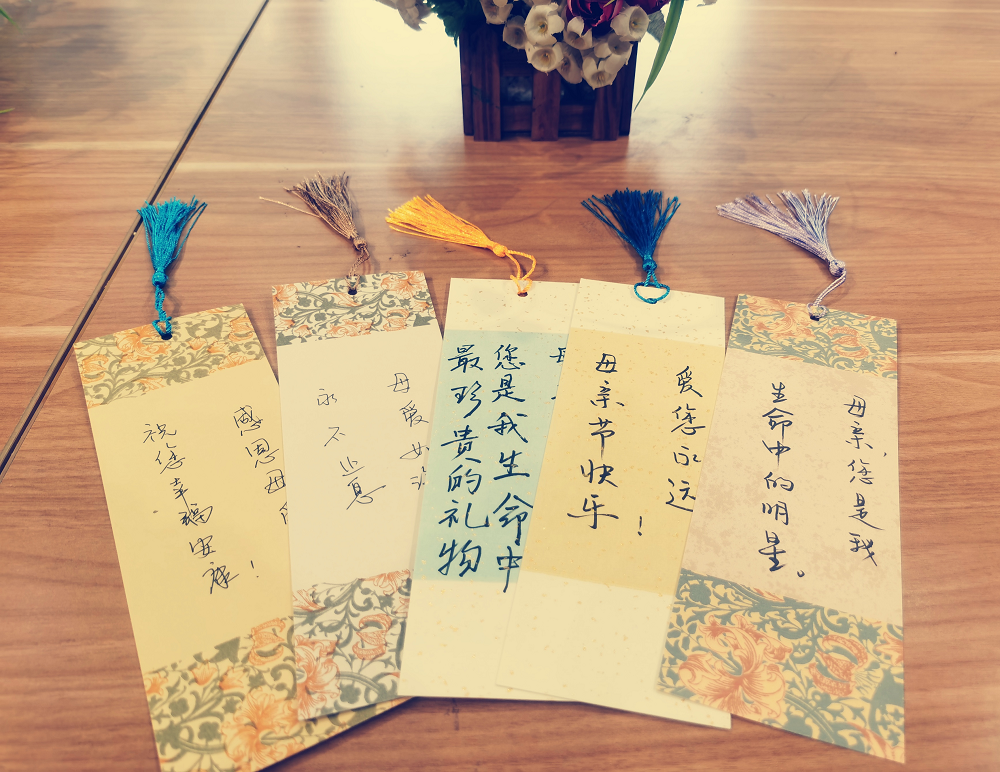 感恩母
祝您幸福安康！
母爱如
永不止息
您是我生命中
最珍贵的礼物
爱您永远
母亲节快乐！
母亲，您是我
生命中的明星。